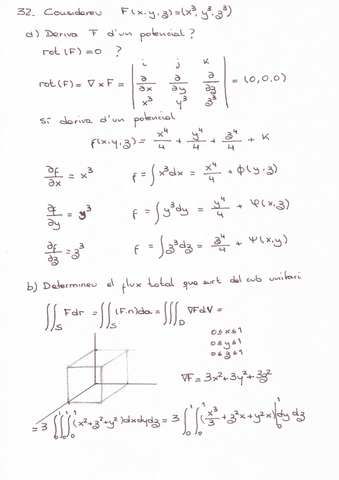 32. Considereu F(x,y,z)=(x³, y³, z³)
a) Deriva F d'un potencial?
rot(F)=0 ?
rot(F) = ∇×F = | i j k ; ∂/∂x ∂/∂y ∂/∂z ; x³ y³ z³ | = (0,0,0)
sí deriva d'un potencial
f(x,y,z) = x⁴/4 + y⁴/4 + z⁴/4 + K
∂f/∂x = x³ f = ∫x³dx = x⁴/4 + φ(y,z)
∂f/∂y = y³ f = ∫y³dy = y⁴/4 + φ(x,z)
∂f/∂z = z³ f = ∫z³dz = z⁴/4 + ψ(x,y)
b) Determineu el flux total que surt del cub unitari
∬_S Fdr = ∬_S (F·n)da = ∭_D ∇F dV =
0≤x≤1
0≤y≤1
0≤z≤1
∇F = 3x²+3y²+3z²
= 3 ∫₀¹∫₀¹∫₀¹ (x²+z²+y²)dxdydz = 3 ∫₀¹∫₀¹ (x³/3 + z²x + y²x)|₀¹ dy dz